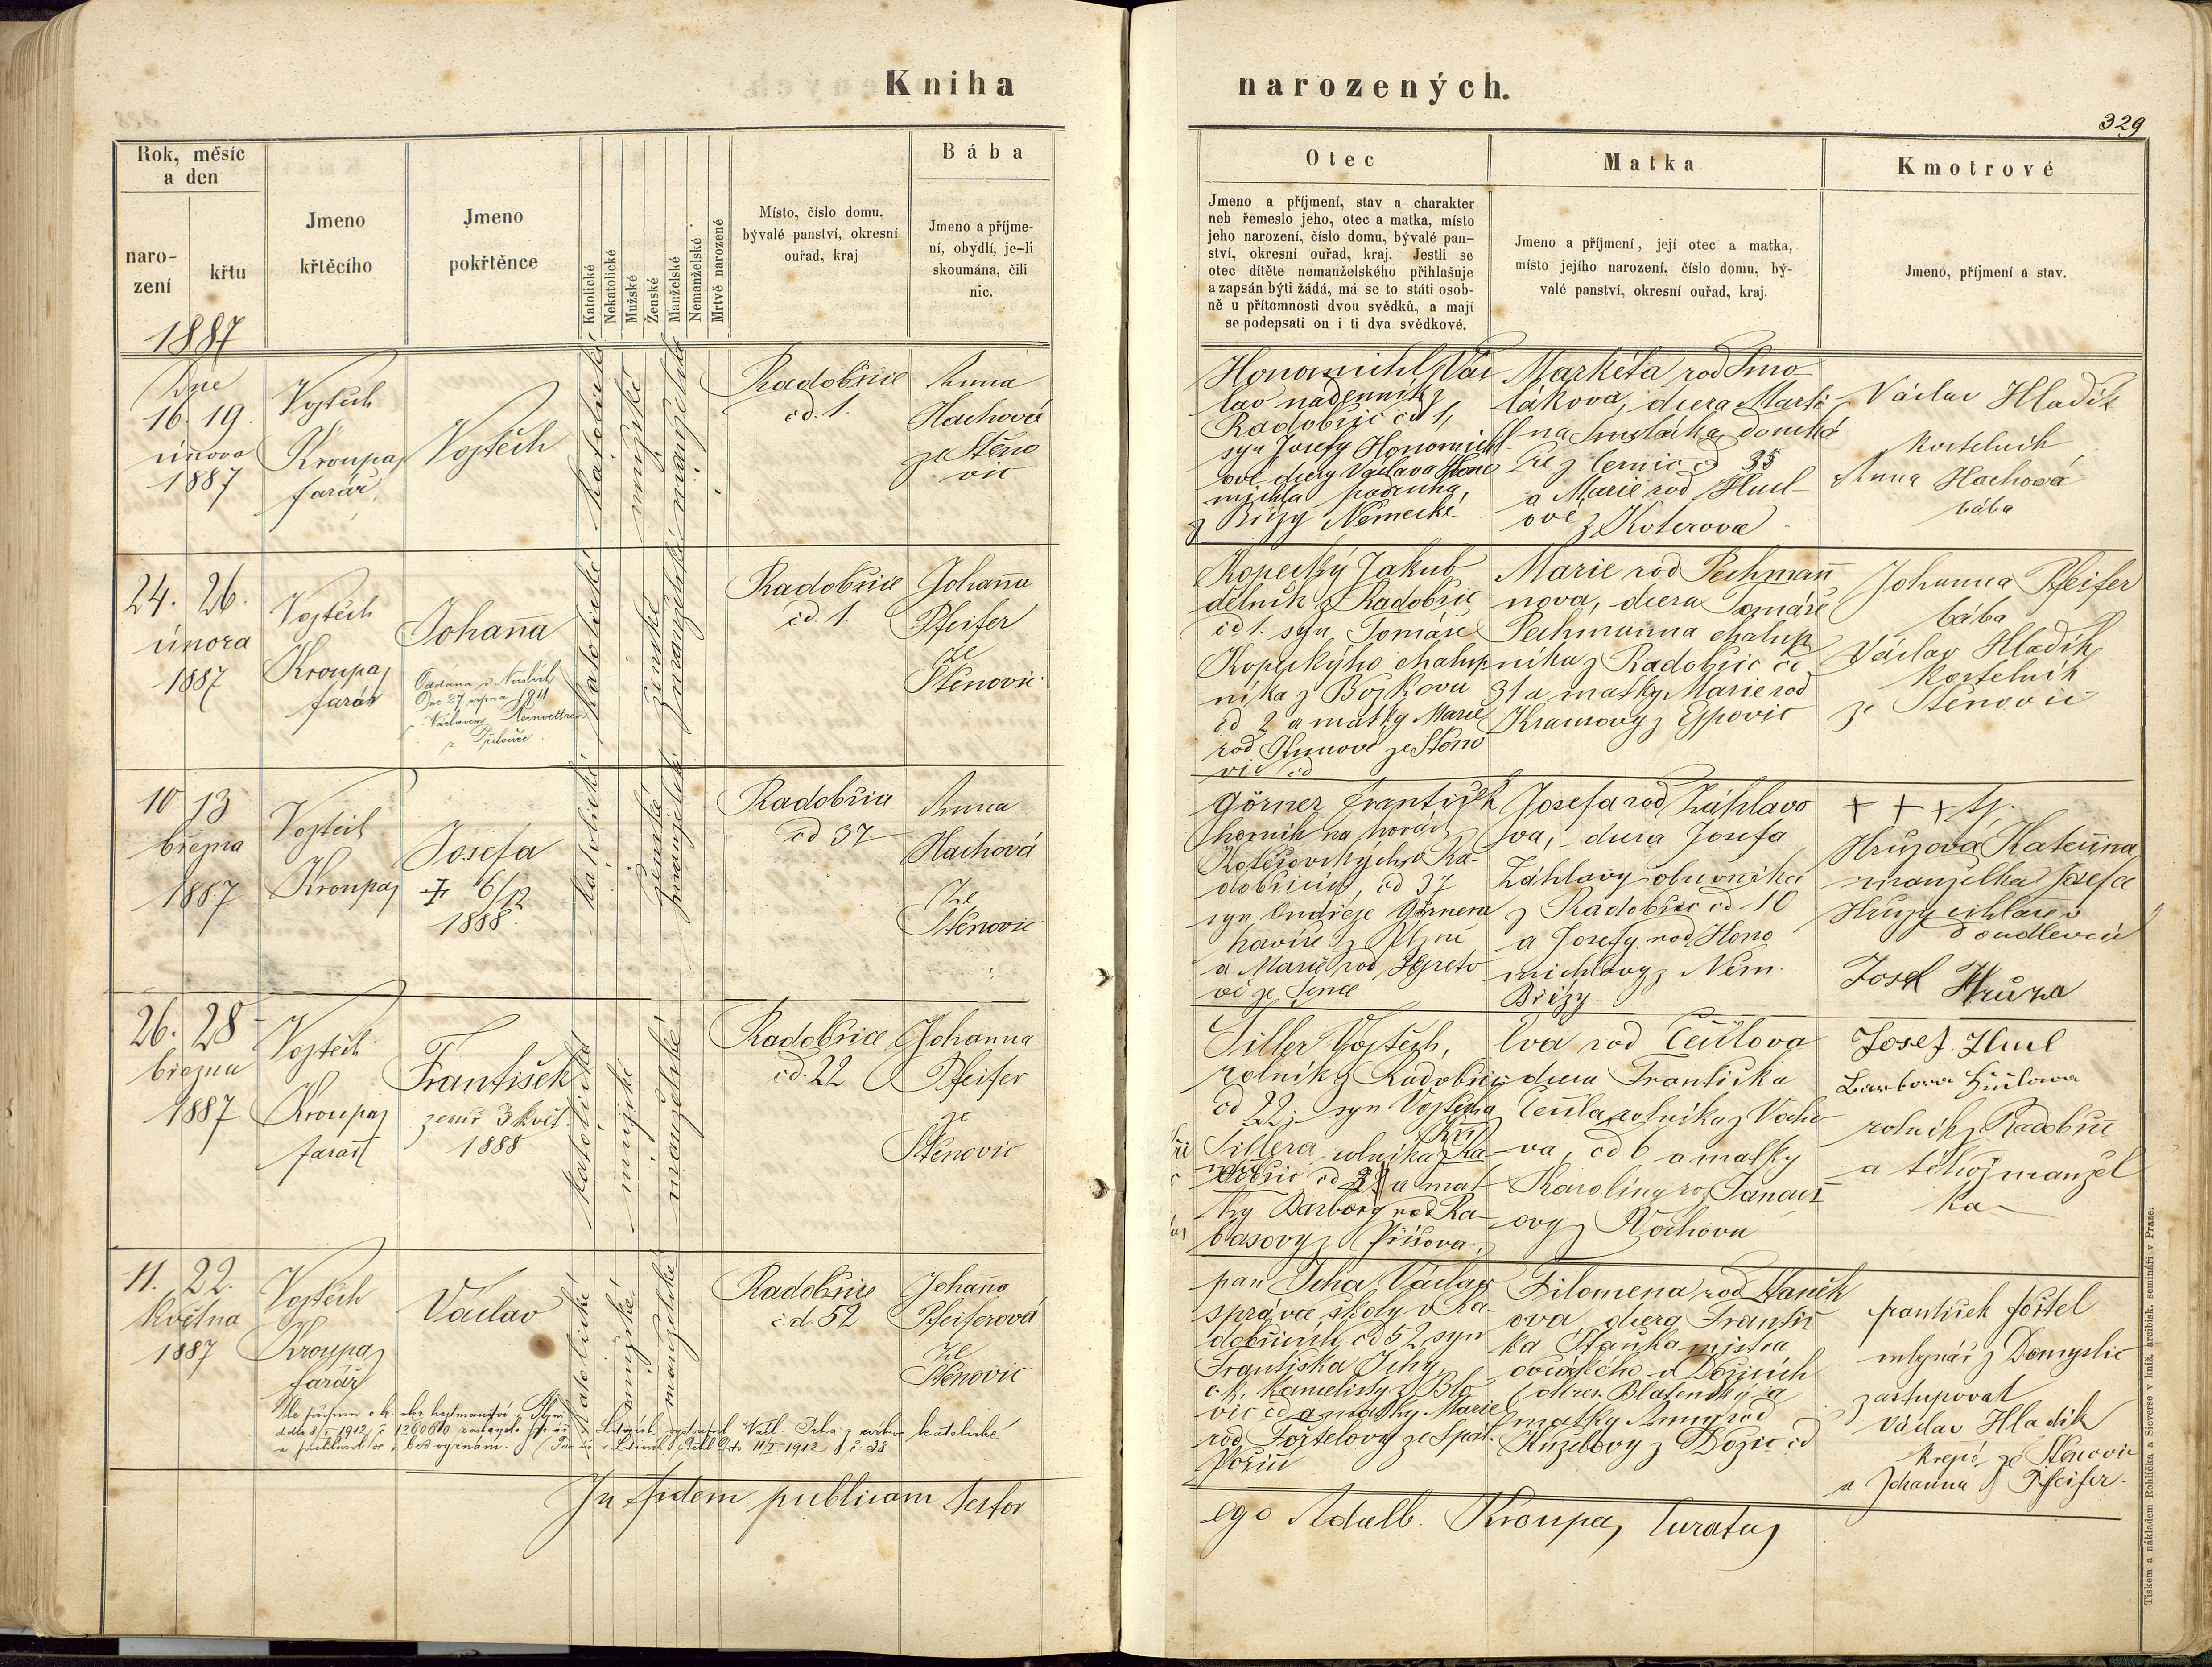 Kniha
narozených.
329
Rok, měsíc
a den
naro-
zení
křtu
Jmeno
křtěcího
Jmeno
pokřtěnce
Katolické
Nekatolické
Mužské
Ženské
Manželské
Nemanželské
Mrtvě narozené
Místo, číslo domu,
bývalé panství, okresní
ouřad, kraj
Bába
Jmeno a příjme-
ní, obydlí, je-li
skoumána, čili
nic.
Otec
Jmeno a příjmení, stav a charakter
neb řemeslo jeho, otec a matka, místo
jeho narození, číslo domu, bývalé pan-
ství, okresní ouřad, kraj. Jestli se
otec dítěte nemanželského přihlašuje
a zapsán býti žádá, má se to státi osob-
ně u přítomnosti dvou svědků, a mají
se podepsati on i ti dva svědkové.
Matka
Jmeno a příjmení, její otec a matka,
místo jejího narození, číslo domu, bý-
valé panství, okresní ouřad, kraj.
Kmotrové
Jmeno, příjmení a stav.
1887
Dne
16. 19.
února
1887
Vojtěch
Kroupa,
farář,
Vojtěch
katolické
mužské
manželské
Radobřice
čd. 1.
Anna
Hachová
ze Štěno
vic
Honomichl Vác
lav nádenník z
Radobřic čd 1,
syn Josefy Honomichl
ové dcery Václava Hono
michla podruha,
z Břízy Německé
Markéta rod Smo
lákova, dcera Marti
na Smoláka domká
ře z Černic čd 35
a Marie rod Hucl
ové z Koterova
Václav Hladík
kostelník
Anna Hachová
bába
24. 26.
února
1887
Vojtěch
Kroupa,
farář
Johanna
Oddána v
Dne 27. srpna 1911
Václavem
katolické
ženské
manželské
Radobřice
čd. 1.
Johanna
Pfeifer
ze
Štěnovic
Kopecký Jakub
dělník z Radobřic
čd 1. syn Tomáše
Kopeckýho chalup
níka z Bojkova
čd 2 a matky Marie
rod ze Štěno
vic čd
Marie rod Pechman
nova, dcera Tomáše
Pechmanna chalup
níka z Radobřic čd
31 a matky Marie rod
Krausovy z Ejpovic
Johanna Pfeifer
bába
Václav Hladík
kostelník
ze Štěnovic
10 13
března
1887
Vojtěch
Kroupa,
Josefa
† 6/12
1888
katolické
ženské
manželské
Radobřice
čd 37
Anna
Hachová
ze
Štěnovic
Görner František
horník na horách
Koterovských v Ra-
dobřicích, čd 37
syn Ondřeje Görnera
havíře z Plzně
a Marie rod
ze
Josefa rod Záhlavo
va, dcera Josefa
Záhlavy obuvníka
z Radobřic čd 10
a Josefy rod Hono
michlovy z Něm.
Břízy
+ + + tj.
Hrůzová Kateřina
manželka Josefa
Hrůzy cihláře v
Doudlevcích
Josef Hrůza
26. 28
března
1887
Vojtěch
Kroupa,
farář
František
zemř 3 květ.
1888
katolické
mužské
manželské
Radobřice
čd. 22
Johanna
Pfeifer
ze
Štěnovic
Tiller Vojtěch,
rolník z Radobřic
čd 22, syn Vojtěcha
Tillera rolníka z Ra-
dobřic čd a mat
ky Barbory rod Ra-
basovy z Příšova
Eva rod Čeillova
dcera Františka
Čeilla rolníka z Vocho
va, čd 6 a matky
Karolíny roz Tanač
ovy z Vochova
Josef Hucl
Barbora Huclowa
rolník z Radobřic
a téhož manžel
ka
11. 22.
května
1887
Vojtěch
Kroupa,
farář
Václav
katolické
mužské
manželské
Radobřice
čd 52
Johanna
Pfeiferová
ze
Štěnovic
pan Jcha Václav
správce školy v Ra-
dobřicích čd 52, syn
Františka Jchy,
c. k. kancelisty z Blo
vic čd a matky Marie
rod Foštelovy ze Spál.
Poříčí
Filomena rod Staněk
ova dcera Františ
ka Staňka mistra
ovčáckého v Dožicích
okres. Blatenský a
matky Anny rod
Kuželovy z Dožic čd
František Foštel
mlynář z Domyslic
zastupoval
Václav Hladík
krejčí ze Štěnovic
a Johanna Pfeifer
In fidem publicam testor
ego Adalb. Kroupa, Curatus
Tiskem a nákladem Rohlíčka a Sieverse v kníž. arcibisk. semináři v Praze: